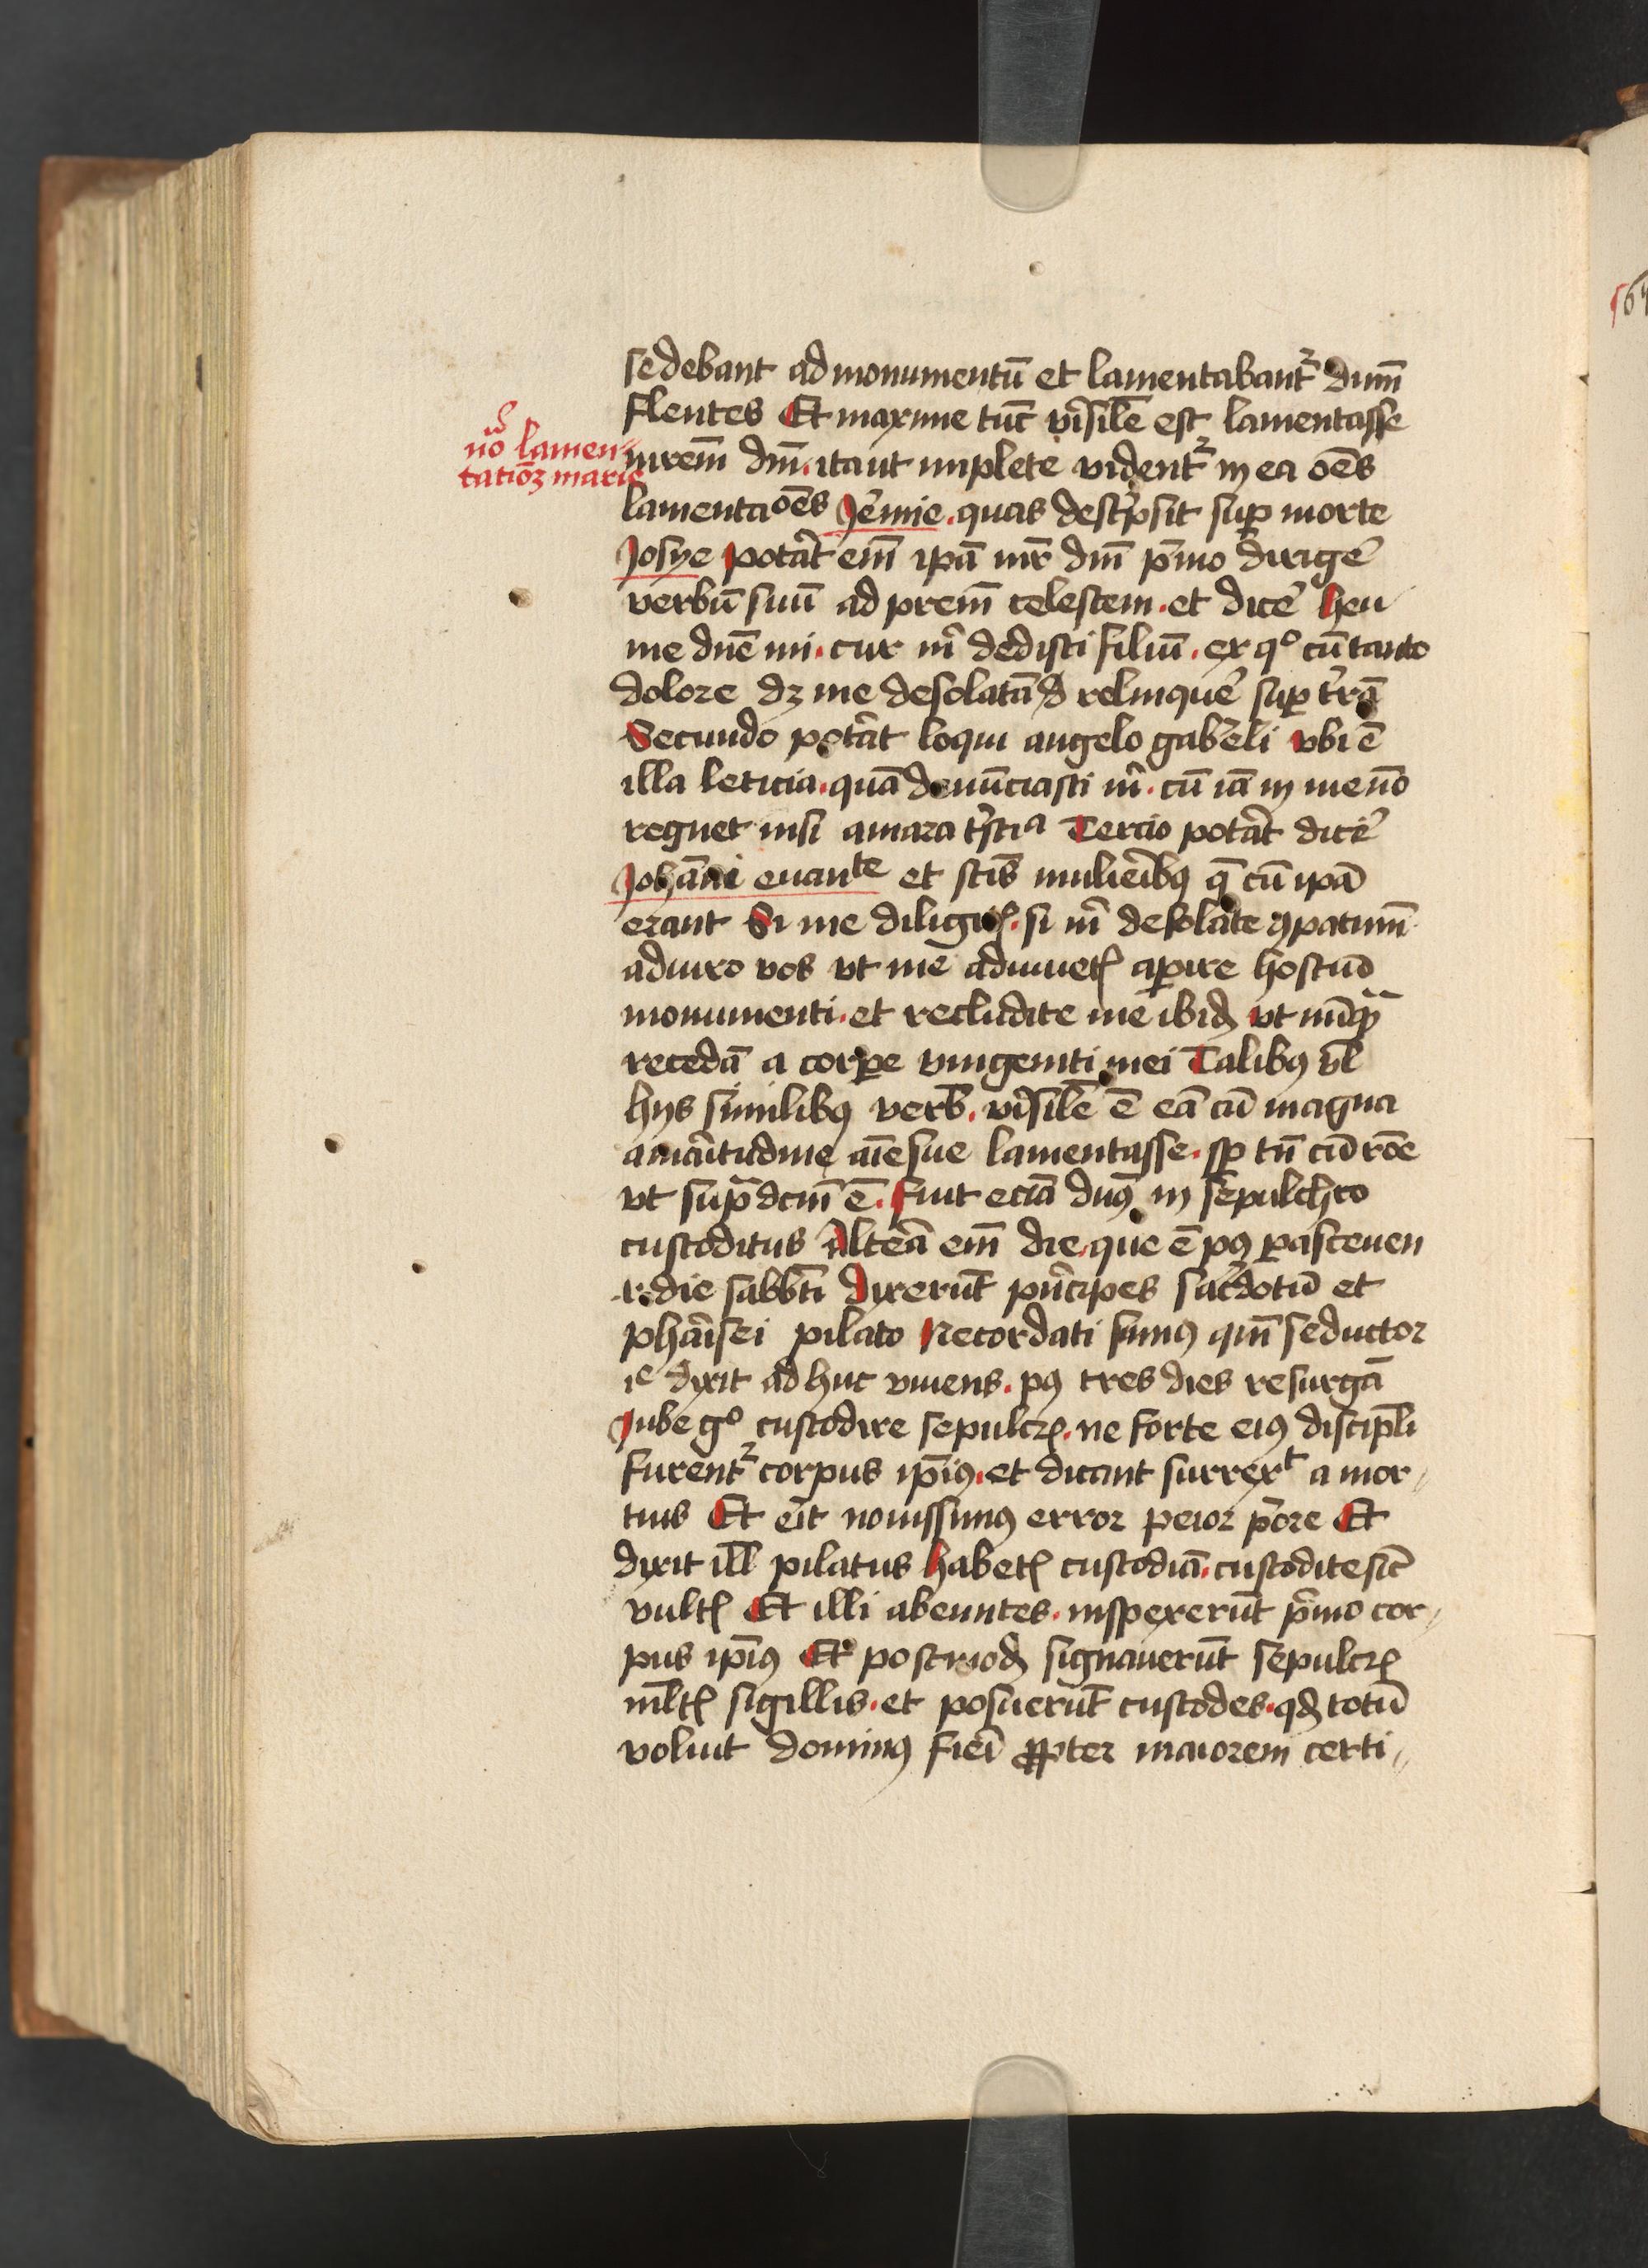 sedebant ad monumentū et lamentabantꝛ dnm̄
flentes Et maxime tūc vˀsilē est lamentasse
nō lamen-
tatiōꝫ marie
mrem̄ dnī. ita ut implete videntꝛ in ea oēs
lamentacōes Jeˀmie. quas descˀpsit suꝑ morte
Josye potˀat em̄ ipā mr̄ dnī pˀmo dirigeˀ
verbū suū ad prem̄ celestem. et diceˀ heu
me dnē mi. cur mˀ dedisti filiū. ex qº cū tanto
dolore dꝫ me desolatā relinqueˀ suꝑ tˀrā
Secundo potˀat loqui angelo gabˀeli vbi ē
illa leticia. quā denūciasti mˀ. cū iā in me nō
regnet nisi amara tˀsticia Tercio potˀat diceˀ
Johāni euanᵗᵉ et sctīs mulieˀibꝰ q̄ cū ipā
erant Si me diligitꝭ. si mˀ desolate ꝯpatim̄
adiuro vos vt me adiuuetꝭ aꝑire hostiū
monumenti. et recludite me ibidꝫ vt nūqꝫ̄
recedā a corꝑe vnigeniti mei Talibꝰ vl̄
hijs similibꝰ verb̄. vˀsilē ē eā cū magna
amaˀitudine aīe sue lamentasse. sꝑ tn̄ cū rōe
vt supˀ dcm̄ ē. Fuit eciā dnꝰ in sepulchro
custoditus Alteˀa em̄ die. que ē pꝰ ꝑasceuen
.i. die sabbˀti Dixerūt pˀncipes sacˀdotū et
phaˀisei pilato Recordati sumꝰ qm̄ seductor
iᵉ dixit adhuc viuens. pꝰ tres dies resurgā
Jube gº custodire sepulcrꝭ. ne forte eiꝰ discipl̄i
furentꝛ corpus ip̄iꝰ. et dicant surrexᵗ a mor-
tuis Et eˀit nouissimꝰ error peior pˀore Et
dixit ill̄ pilatus habetꝭ custodiā. custodite sic̄
vultꝭ Et illi abeuntes. inspexerūt pˀmo cor-
pus ip̄iꝰ Et postmodꝫ signauerūt sepulcrꝭ
ml̄tꝭ sigillis. et posuerūt custodes. qꝫ totū
voluit dominꝰ fieˀi ꝓpter maiorem certi-